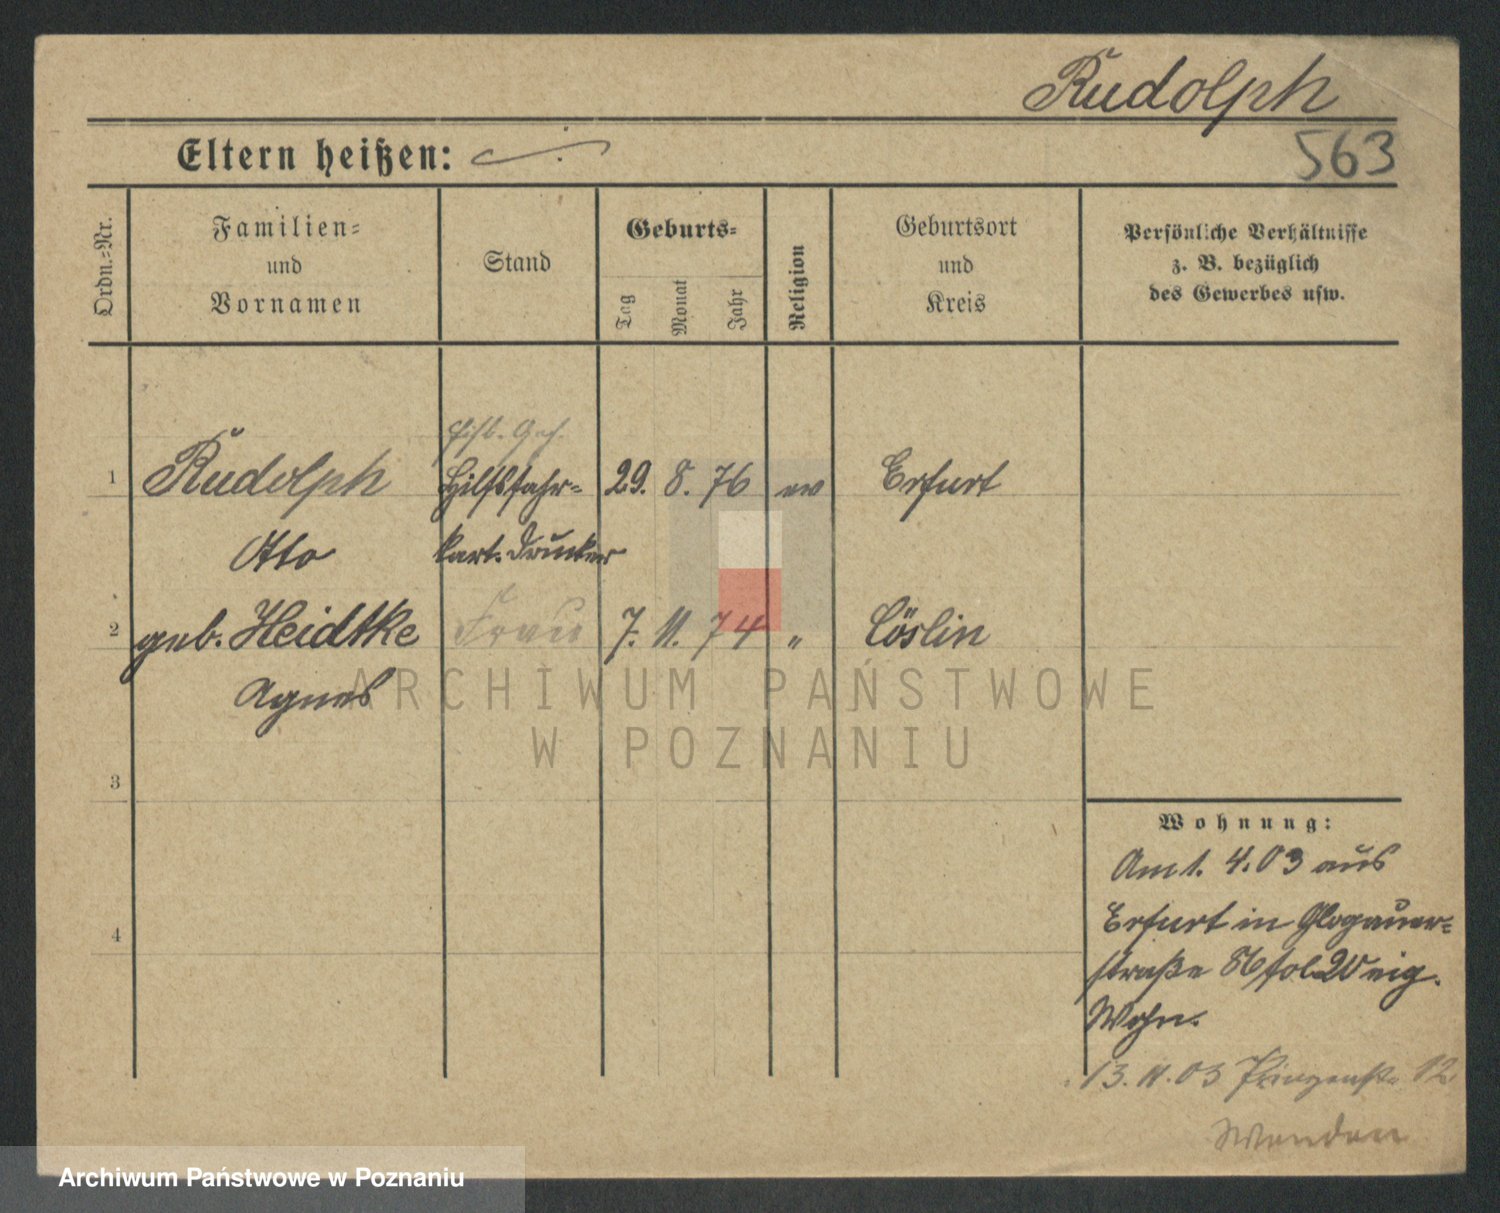 Rudolph
Eltern heißen:
563
Ordn.-Nr.
Familien-
und
Vornamen
Stand
Geburts-
Tag
Monat
Jahr
Religion
Geburtsort
und
Kreis
Persönliche Verhältnisse
z. B. bezüglich
des Gewerbes usw.
1 Rudolph Hilfsfahr- 29. 8. 76 ev Erfurt
Otto kart. Drucker
2 geb. Heidtke Frau 7. 11. 74 " Cöslin
Agnes
3
4
Wohnung:
Am 1. 4. 03 aus
Erfurt in Glogauer-
straße 86 eig.
Wohn.
13. 11. 03 Prinzenstr. 12
Wenden
ARCHIWUM PAŃSTWOWE
W POZNANIU
Archiwum Państwowe w Poznaniu